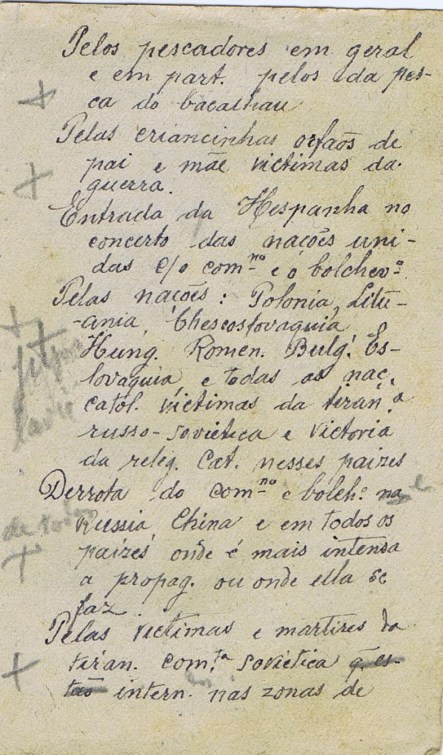 Pelos pescadores em geral
e em part. pelos da pes-
ca do bacalhau
Pelas criancinhas orfaõs de
pai e mãe victimas da
guerra.
Entrada da Hespanha no
concerto das nações uni-
das c/o com.no e o bolchev.o
Pelas nações: Polonia, Litu-
-ania, Checoslovaquia
Hung. Romen. Bulg. Es-
lovaquia e todas as nac.
catol. victimas da tiran.a
russo-sovietica e victoria
da relig. Cat. nesses paizes
Derrota do com.no e bolch.o na
Russia China e em todos os
paizes onde é mais intensa
a propag. ou onde ella se
faz.
Pelas victimas e martires da
tiran. com.ta sovietica q. es-
tão intern. nas zonas de